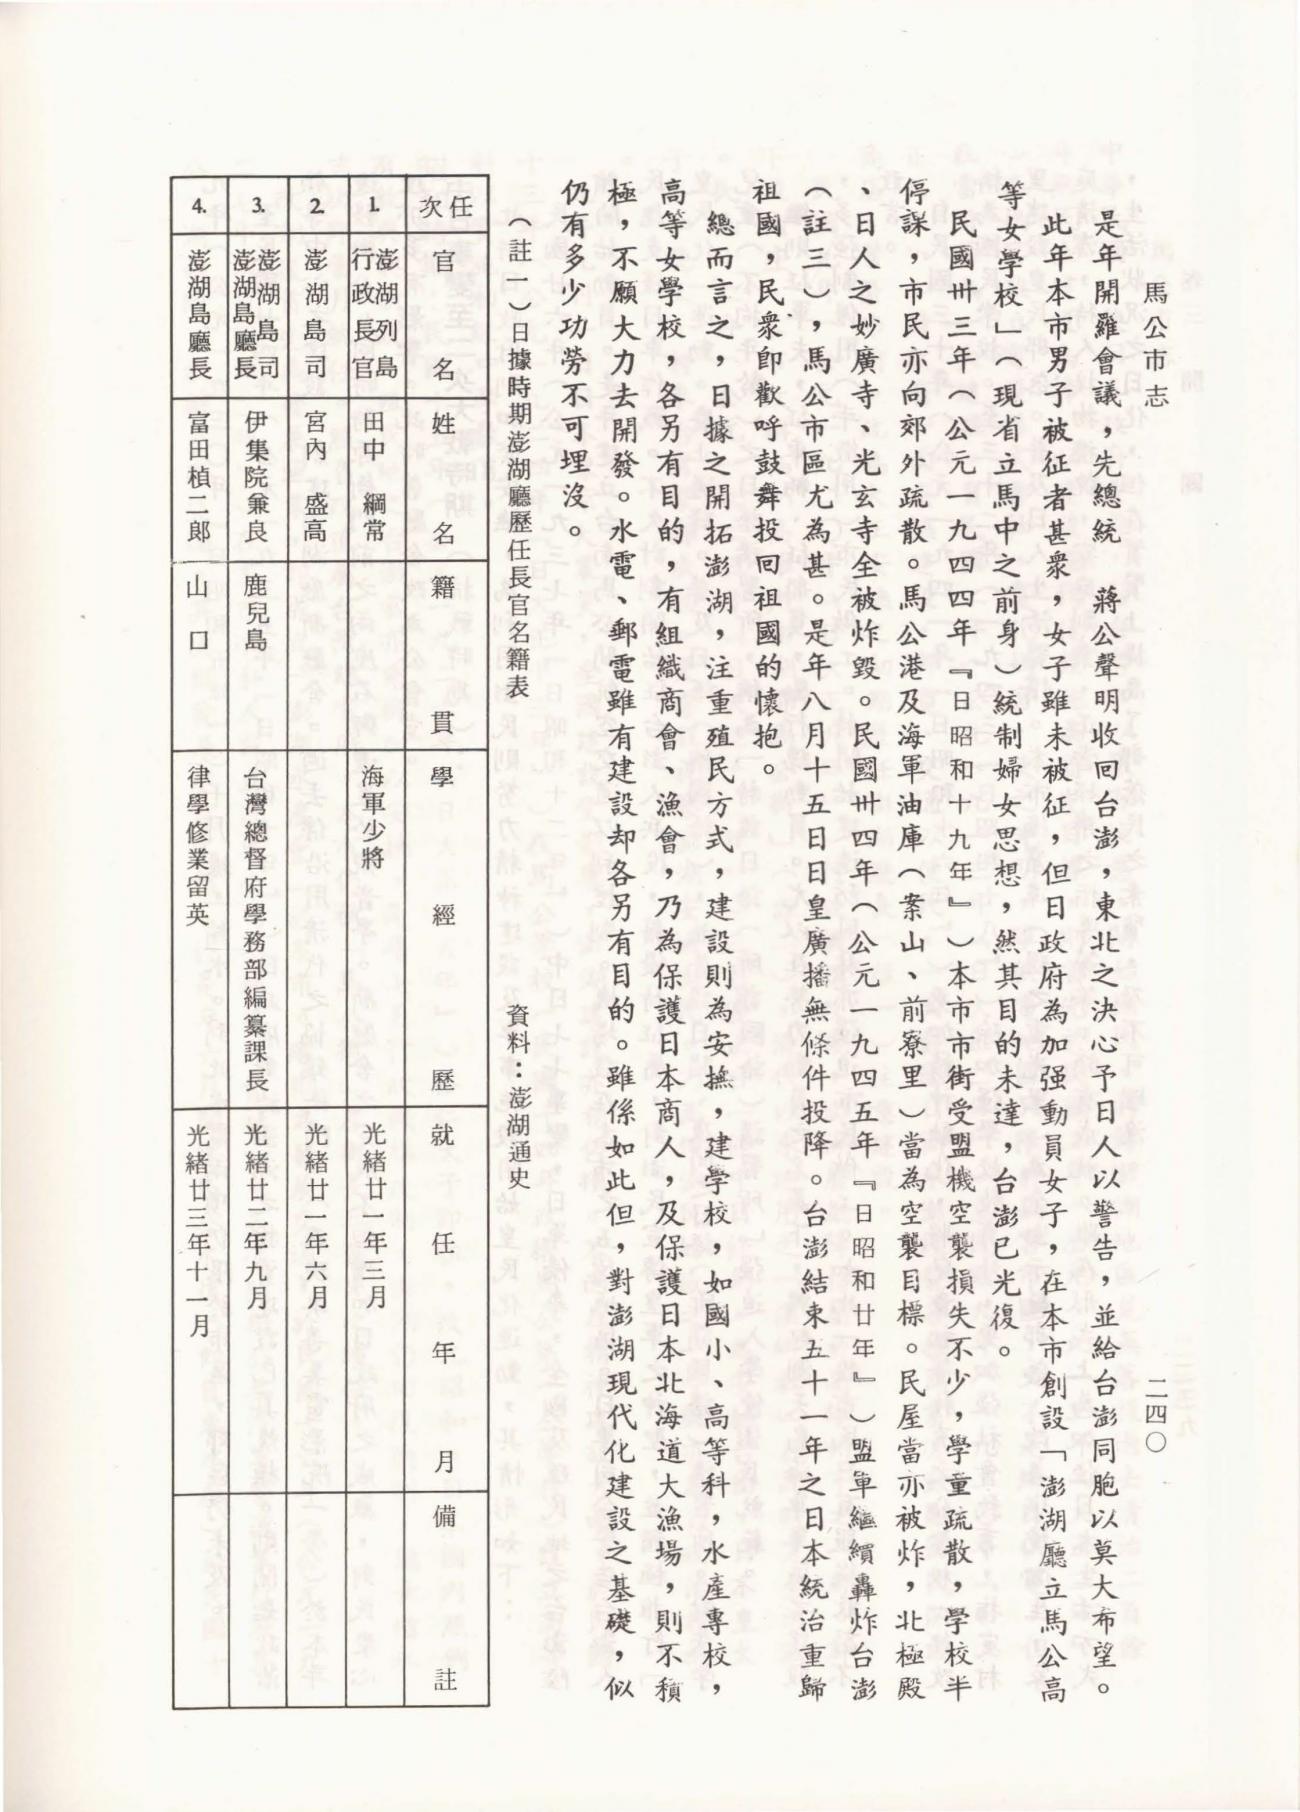 馬公市志
二四〇
是年開羅會議，先總統　蔣公聲明收回台澎，東北之決心予日人以警告，並給台澎同胞以莫大布望。
此年本市男子被征者甚衆，女子雖未被征，但日政府為加强動員女子，在本市創設「澎湖廳立馬公高
等女學校」（現省立馬中之前身）統制婦女思想，然其目的未達，台澎已光復。
民國卅三年（公元一九四四年『日昭和十九年』）本市市街受盟機空襲損失不少，學童疏散，學校半
停課，市民亦向郊外疏散。馬公港及海軍油庫（案山、前寮里）當為空襲目標。民屋當亦被炸，北極殿
、日人之妙廣寺、光玄寺全被炸毀。民國卅四年（公元一九四五年『日昭和廿年』）盟軍繼續轟炸台澎
（註三），馬公市區尤為甚。是年八月十五日日皇廣播無條件投降。台澎結束五十一年之日本統治重歸
祖國，民衆卽歡呼鼓舞投回祖國的懷抱。
總而言之，日據之開拓澎湖，注重殖民方式，建設則為安撫，建學校，如國小、高等科，水產專校，
高等女學校，各另有目的，有組織商會、漁會，乃為保護日本商人，及保護日本北海道大漁場，則不積
極，不願大力去開發。水電、郵電雖有建設却各另有目的。雖係如此但，對澎湖現代化建設之基礎，似
仍有多少功勞不可埋沒。
（註一）日據時期澎湖廳歷任長官名籍表　資料：澎湖通史
任次　官名　姓名　籍貫　學經歷　就任年月　備註
1.　澎湖列島行政長官　田中　綱常　海軍少將　光緒廿一年三月
2.　澎湖島司　宮內　盛高　光緒廿一年六月
3.　澎湖島司澎湖島廳長　伊集院兼良　鹿兒島　台灣總督府學務部編纂課長　光緒廿二年九月
4.　澎湖島廳長　富田楨二郎　山口　律學修業留英　光緒廿三年十一月